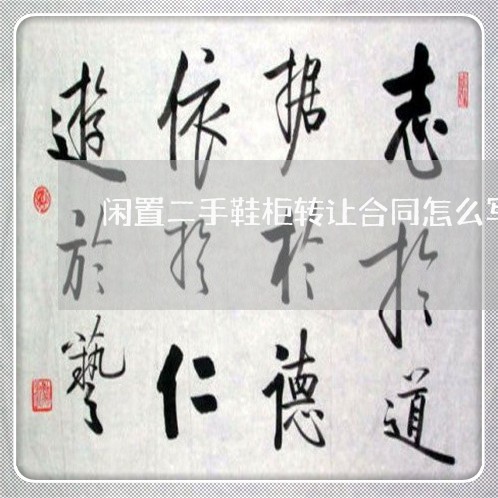 志於道
据於德
依於仁
遊於藝
闲置二手鞋柜转让合同怎么写